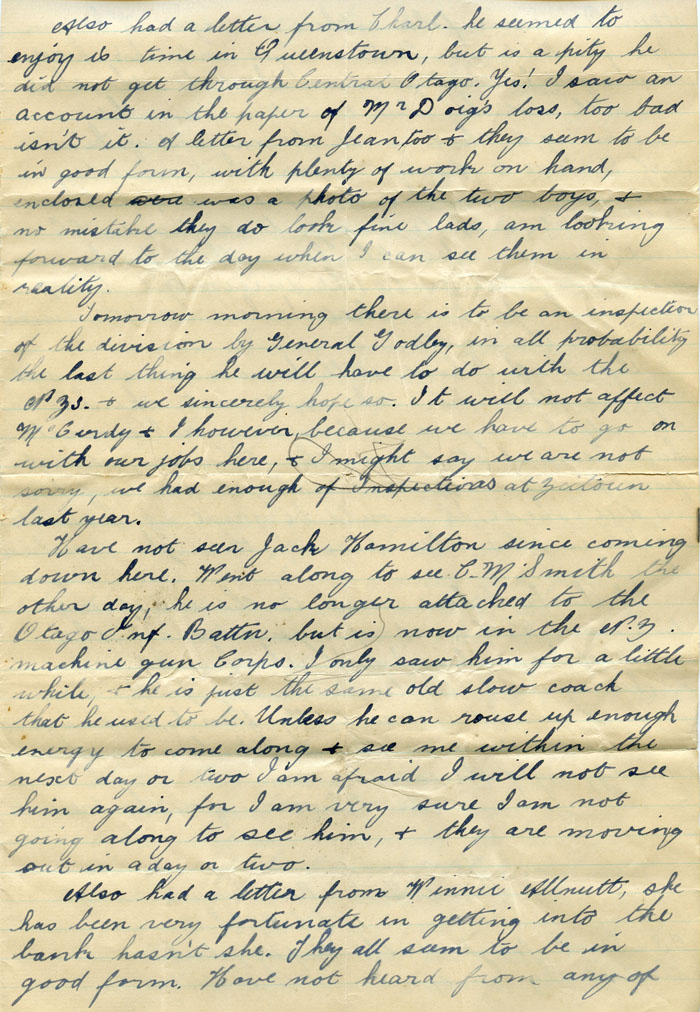 Also had a letter from Charl. he seemed to
enjoy is time in Queenstown, but is a pity he
did not get through Central Otago. Yes! I saw an
account in the paper of Mr Doig's loss, too bad
isn't it. A letter from Jean too & they seem to be
in good form, with plenty of work on hand,
enclosed were was a photo of the two boys, &
no mistake they do look fine lads, am looking
forward to the day when I can see them in
reality.
Tomorrow morning there is to be an inspection
of the division by General Godley, in all probability
the last thing he will have to do with the
N Zs. & we sincerely hope so. It will not affect
McCurdy & I however, because we have to go on
with our jobs here, & I might say we are not
sorry, we had enough of Inspections at Zeitoun
last year.
Have not seen Jack Hamilton since coming
down here. Went along to see C. M. Smith the
other day, he is no longer attached to the
Otago Inf. Battn. but is now in the N.Z.
machine gun Corps. I only saw him for a little
while, & he is just the same old slow coach
that he used to be. Unless he can rouse up enough
energy to come along & see me within the
next day or two I am afraid I will not see
him again, for I am very sure I am not
going along to see him, & they are moving
out in a day or two.
Also had a letter from Winnie Allnutt, she
has been very fortunate in getting into the
bank hasn't she. They all seem to be in
good form. Have not heard from any of